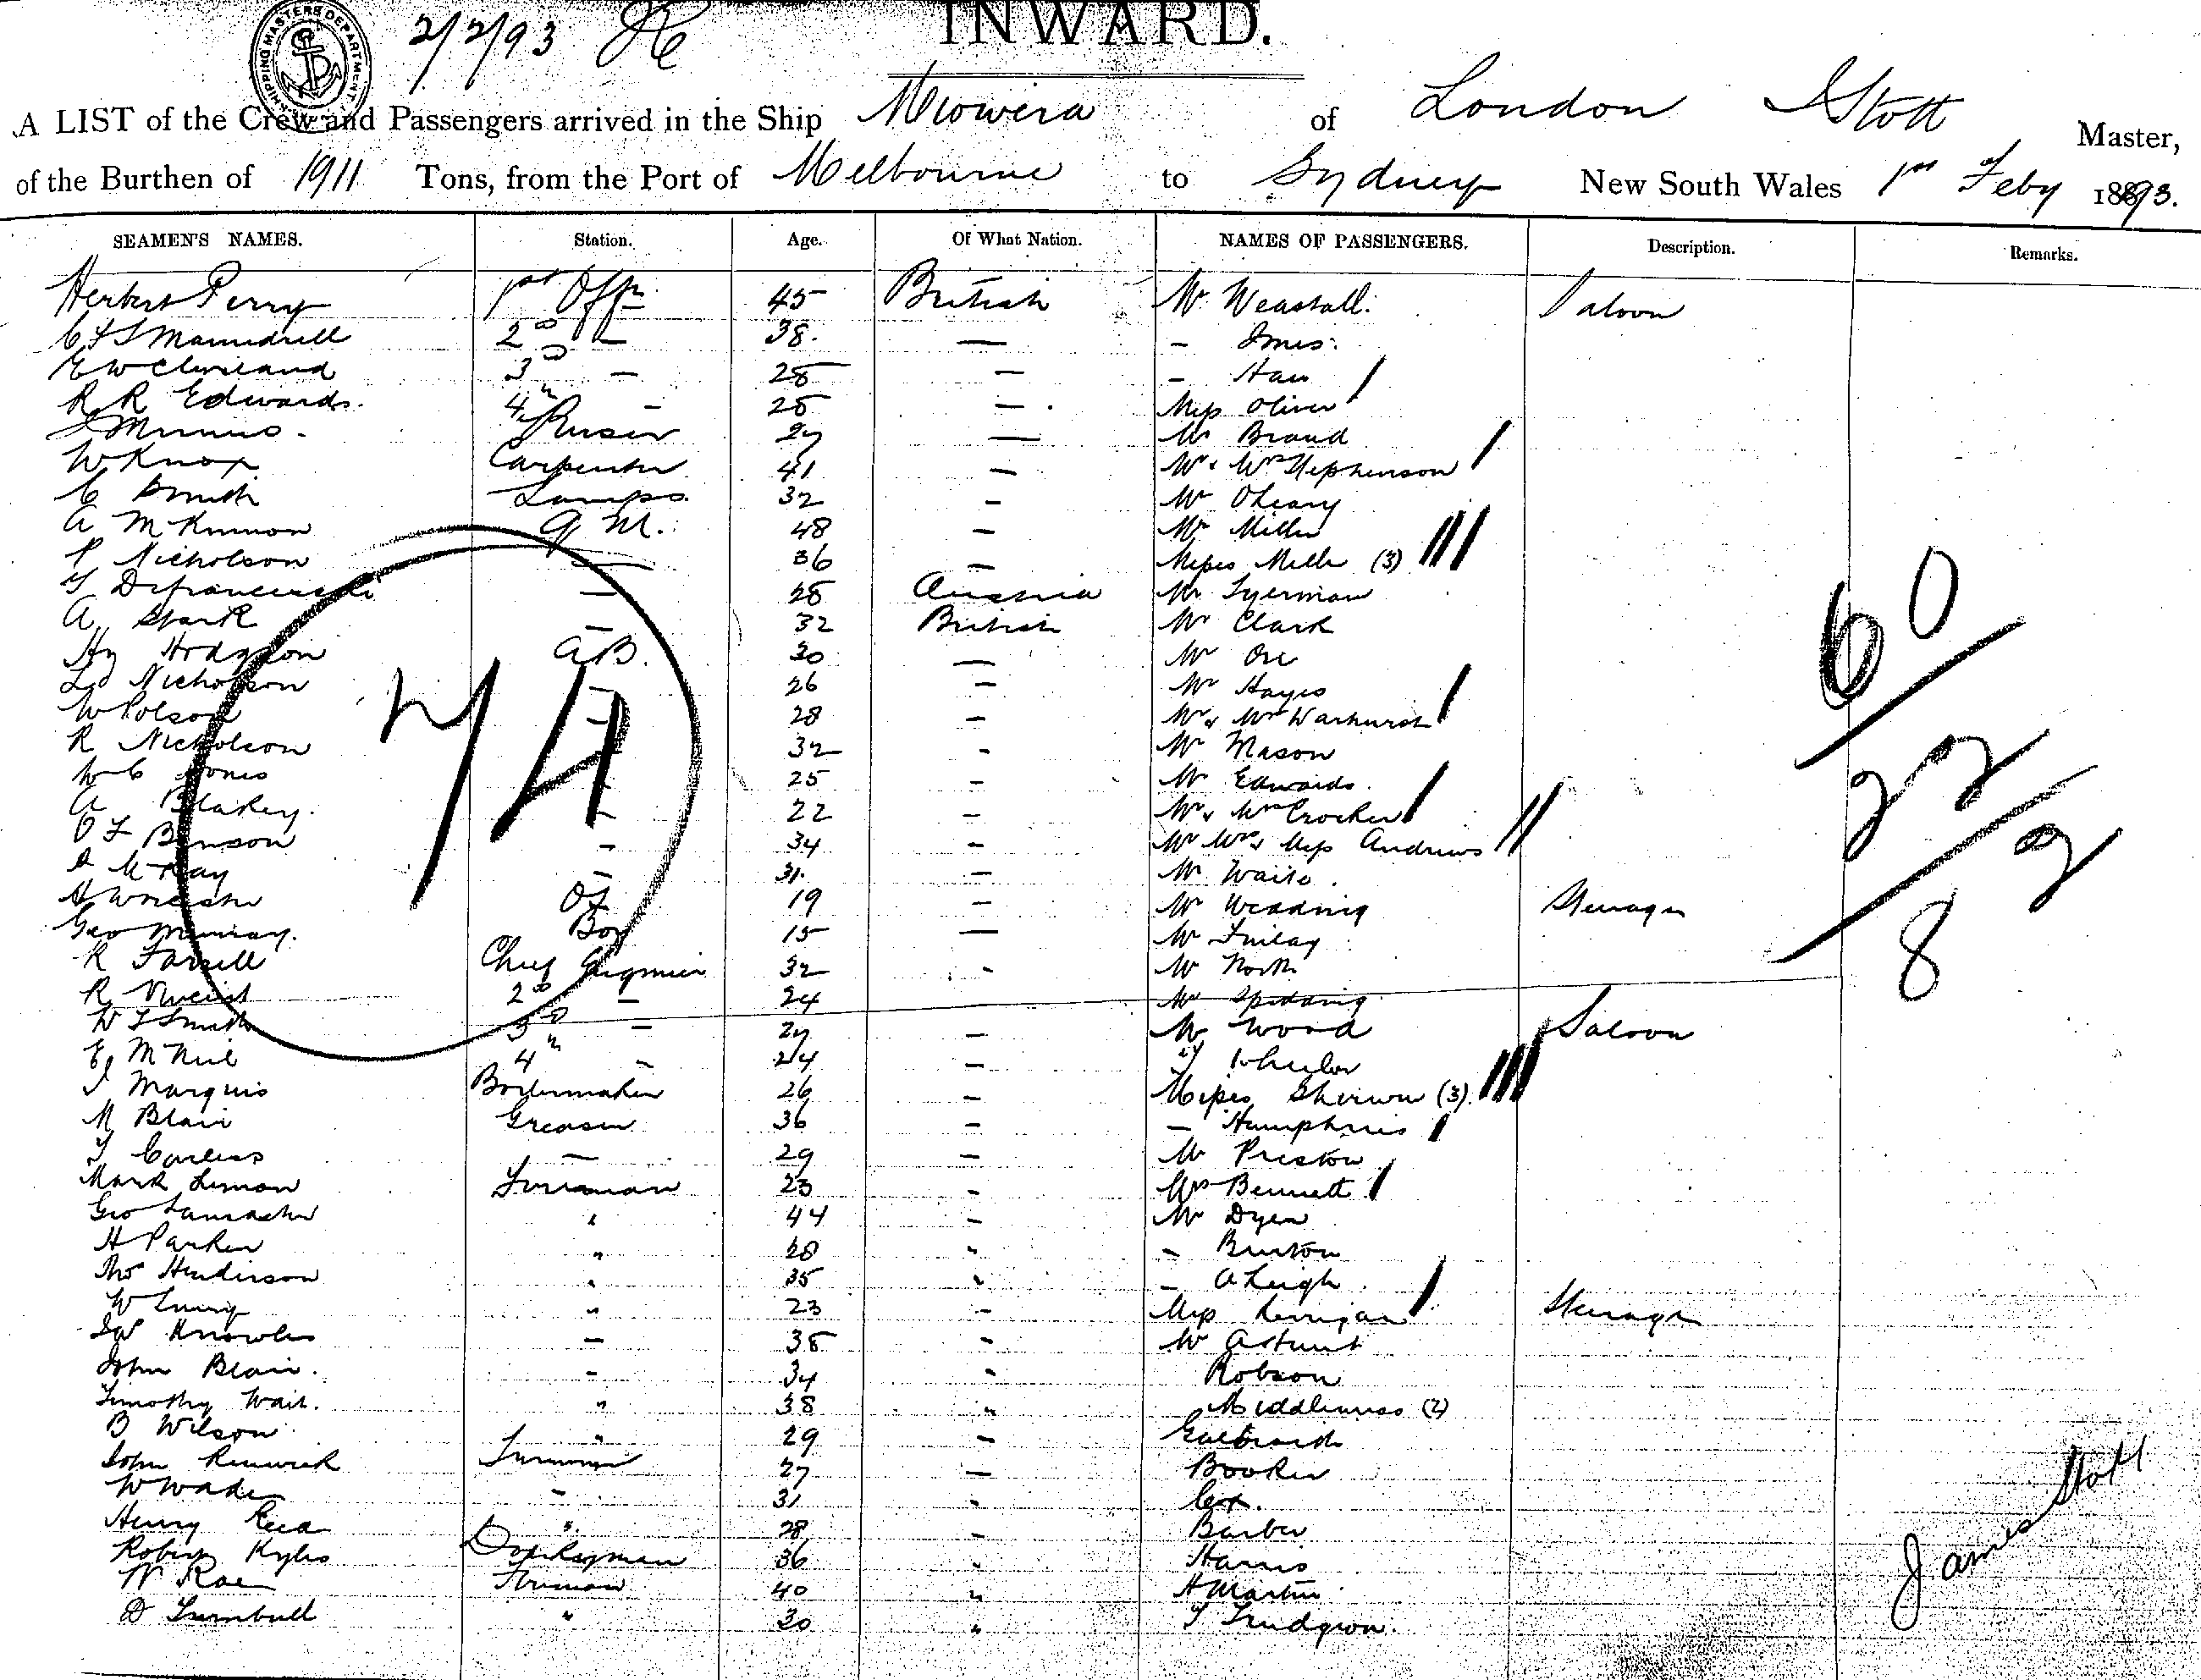 SHIPPING MASTERS DEPARTMENT
2/2/93
INWARD.
A LIST of the Crew and Passengers arrived in the Ship Miowera of London Stott Master,
of the Burthen of 1911 Tons, from the Port of Melbourne to Sydney New South Wales 1st Feby 1893.
SEAMEN'S NAMES. Station. Age. Of What Nation. NAMES OF PASSENGERS. Description. Remarks.
Herbert Perry 1st Offr 45 British Mr Weastall. Saloon
2nd — 38. — - Innes.
3rd — 28 — -
R R Edwards. 4th - 25 — Miss Oliver
Purser 27 — Mr Brand
W Knox Carpenter 41 — Mr & Mrs Stephenson
C Smith Lamps 32 - Mr OLeary
A McKinnon Q M. 48 — Mr Miller
P Nicholson — 36 — Misses Miller (3)
— 28 Austria Mr Tyerman
A Stark — 32 British Mr Clark
Hy Hodgson A.B. 30 — Mr Orr
Nicholson — 26 — Mr Hayes
W Polson — 28 — Mr & Mrs Warhurst
R Nicholson — 32 - Mr Mason
W C Jones - 25 - Mr Edwards.
A Blakey. - 22 - Mr & Mrs Crocker
O F Benson - 34 - Mr Mrs & Miss Andrews
McKay - 31. - Mr Waite.
OS 19 - Mr Wedding Steerage
Geo Murray. Boy 15 — Mr Finlay
R Farrell Chief Engineer 32 - Mr North
R Vincent 2nd — 24 Mr Spedding
W T Smith 3rd — 27 - Mr Wood Saloon
McNeil 4th - 24 - T Wheeler
J Marquis Boilermaker 26 - Misses Sherwin (3)
M Blair Greaser 36 - - Humphries
T Careless — 29 - Mr Preston
Mark Limon Fireman 23 - Mrs Bennett
Geo Lancaster " 44 - Mr Dyer
H Parker " 28 " - Burton
Thos Henderson " 35 " - A Leigh
W " 23 - Miss Kerrigan Steerage
Knowles — 38 - Mr A Hunt
John Blair. - 34 - Robson
Timothy Wait. " 38 " Middlemiss (2)
B Wilson " 29 - Galbraith
John Renwick Trimmer 27 — Booker
W Wade - 31 - Cox.
Henry Reid " 28 - Barber
Robert Kyles Donkeyman 36 " Harris
W Rae Fireman 40 " H Martin
D Turnbull " 30 " T Trudgeon.
60
22
2
8
James Stott